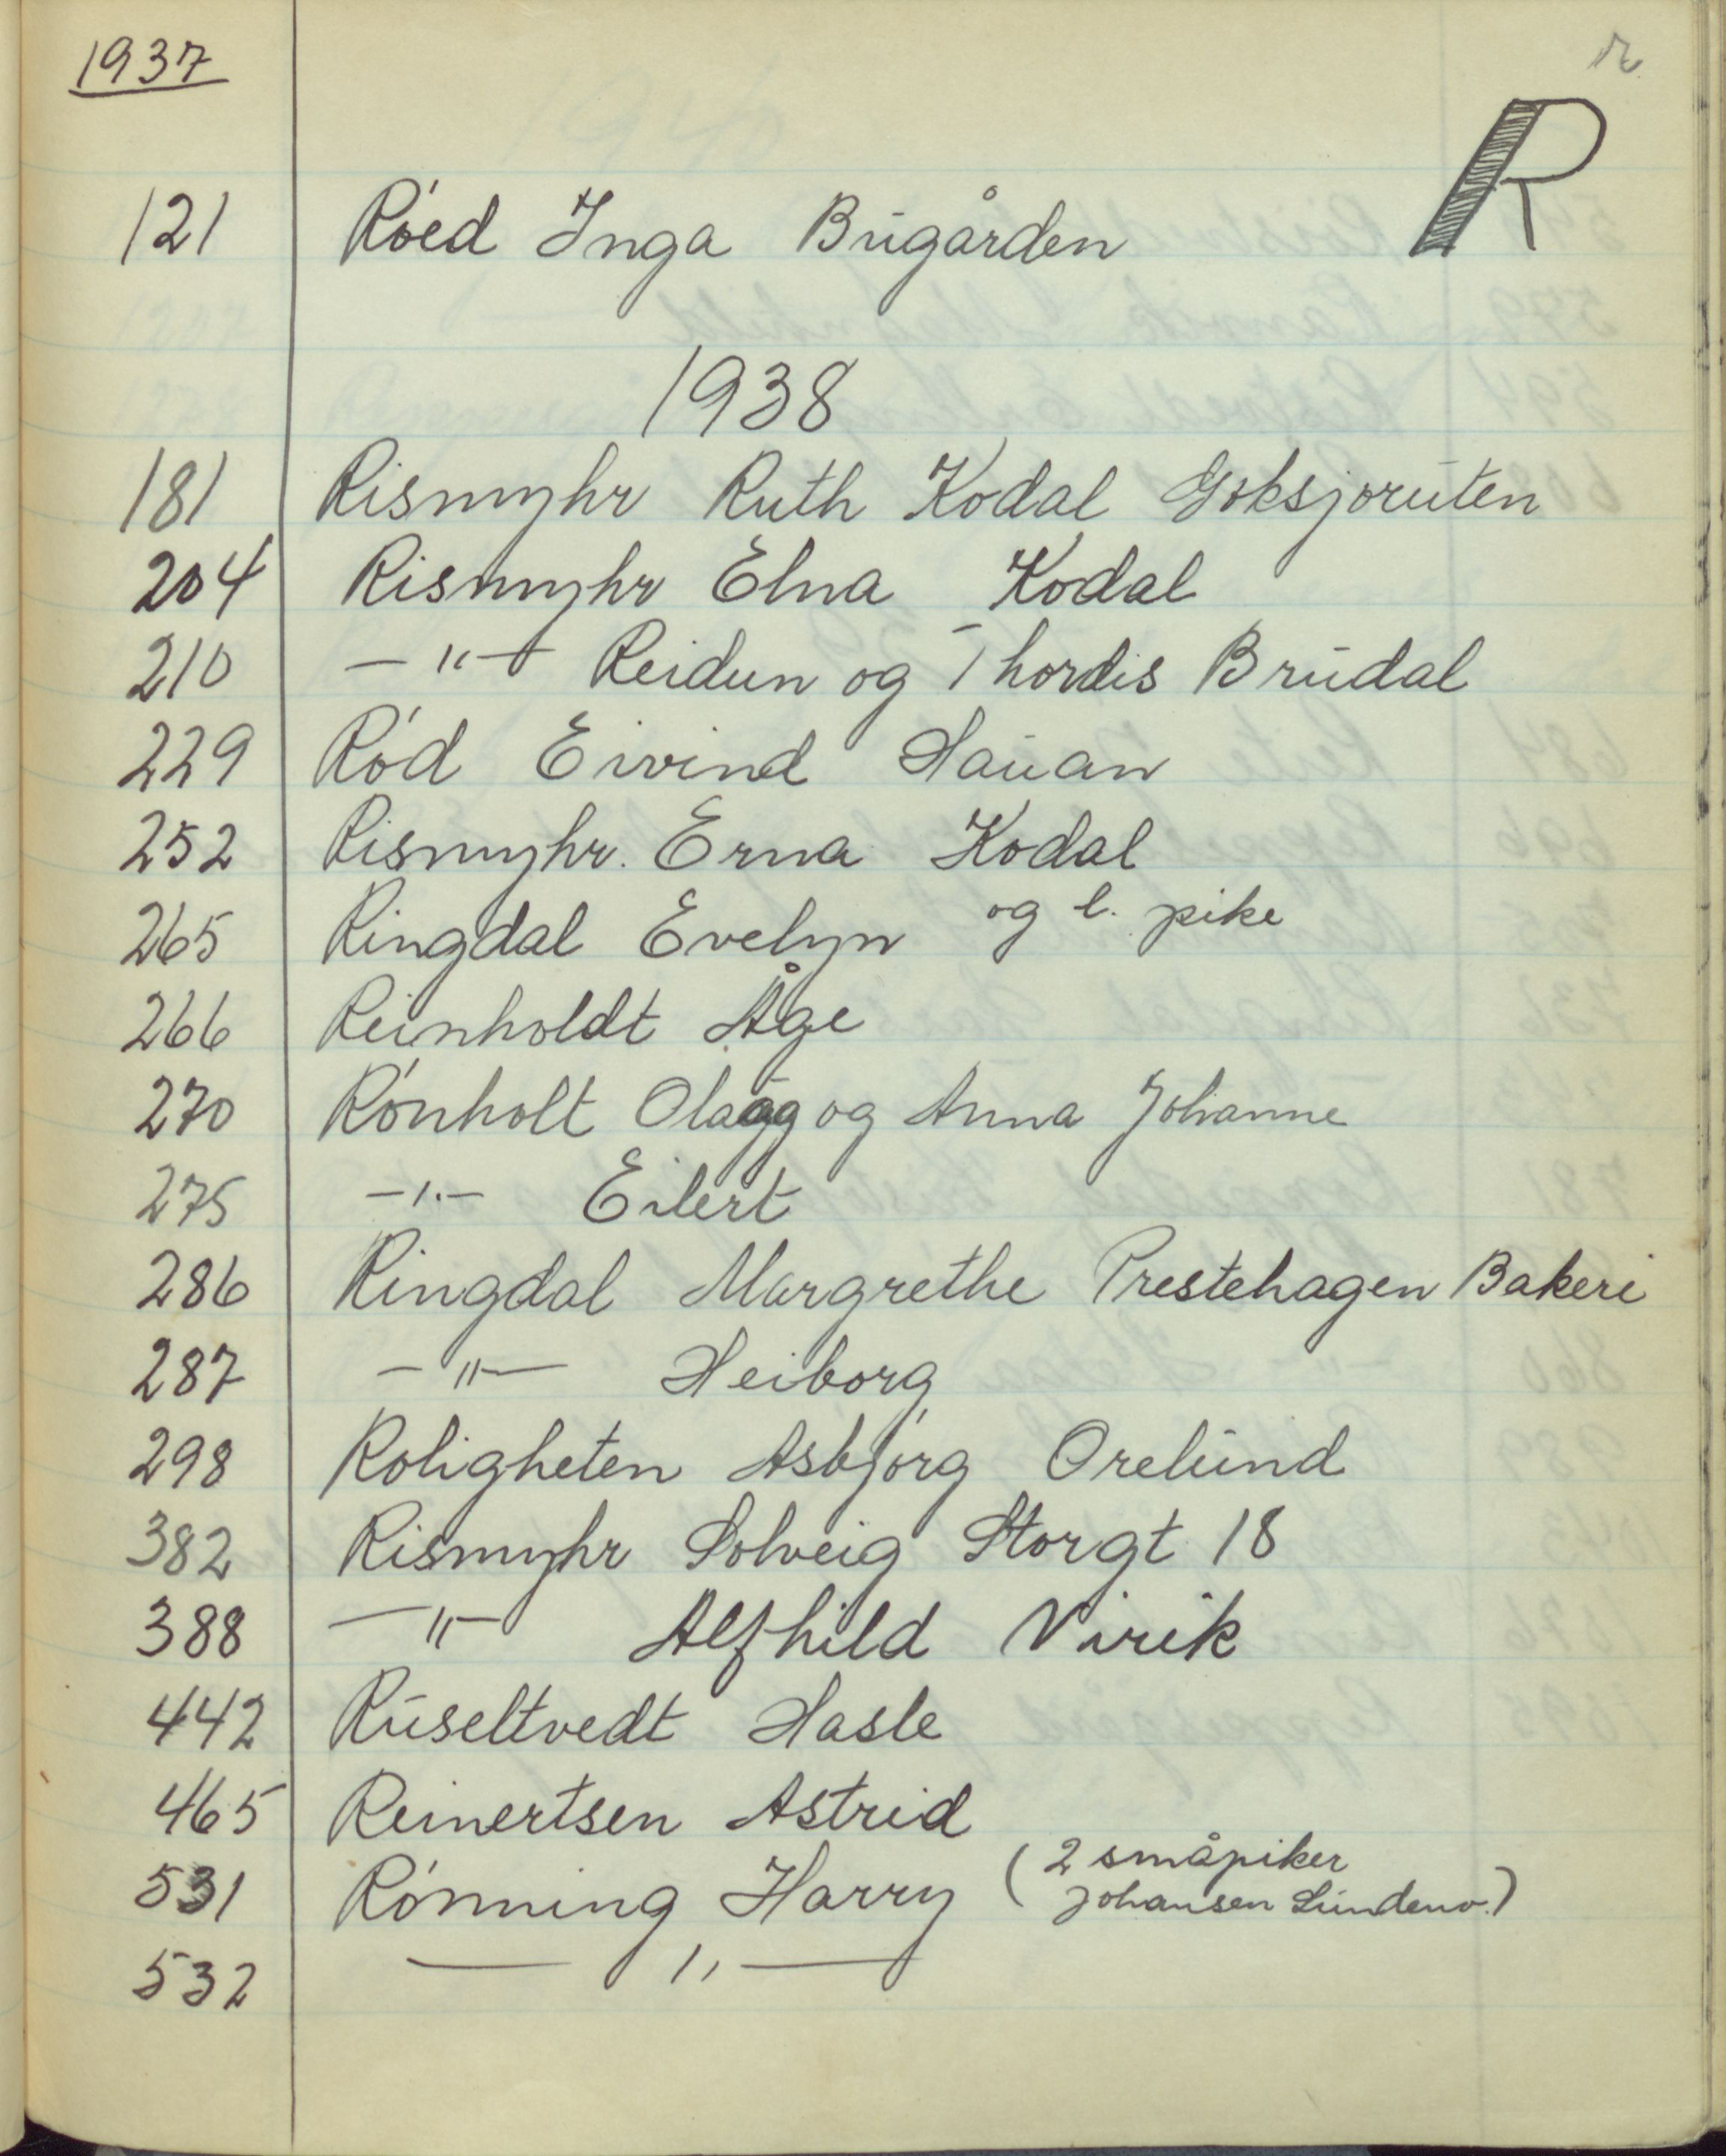 1937
r
R
121 Röed Inga Bugården
1938
181 Rismyhr Ruth Kodal Goksjoruten
204 Rismyhr Elna Kodal
210 —"— Reidun og Thordis Brudal
229 Röd Eivind Hauan
252 Rismyhr. Erna Kodal
265 Ringdal Evelyn og l. pike
266 Reinholdt Åge
270 Rönholt Olaag og Anna Johanne
275 —"— Eilert
286 Ringdal Margrethe Prestehagen Bakeri
287 —"— Heiborg
298 Roligheten Asbjörg Orelund
382 Rismyhr Solveig Storgt 18
388 —"— Alfhild Virik
442 Ruseltvedt Hasle
465 Reinertsen Astrid
531 Rönning Harry (2 småpiker
Johansen Lundenv.)
532 —"—